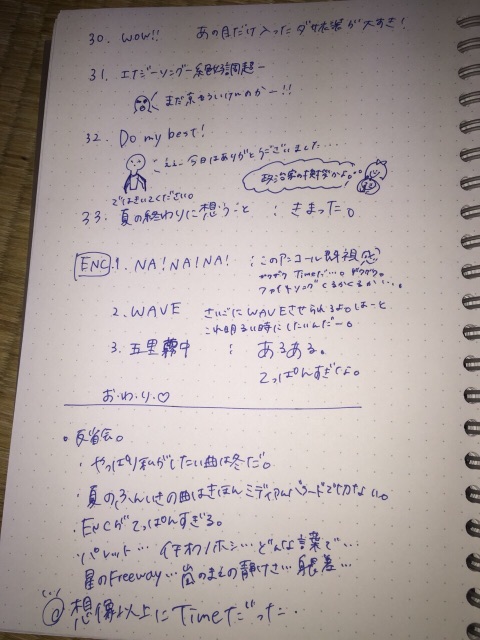 30. WOW!! あの目だけ入ったダサ衣装が大すき!
31. エナジーソング〜絶好調超〜
まだ京もういけんのかー!!
32. Do my best!
ええ、今日はありがとうございました...
ではきいてください。
政治家の挨拶かよ。..
33. 夏の終わりに想うこと : きまった。
ENC.1. NA!NA!NA! : このアンコール既視感
ザワザワ Timeだ... ザワザワ。
ファイトソングくるかくるか...
2. WAVE さいごにWAVEさせられるよ。はーと
これ明るい時にしたいんだー。
3. 五里霧中 : あるある。
てっぱんすぎいよ。
お・わ・り・♡
・反省会。
・やっぱり私がしたい曲は冬だ。
・夏のふんいきの曲はきほんミディアムバラードで切ない。
ENCがてっぱんすぎる。
・パレット... イチカノホシ... どんな言葉で...
星のFreeway... 嵐のまえの静けさ... 銀盤...
想像以上にTimeだった.